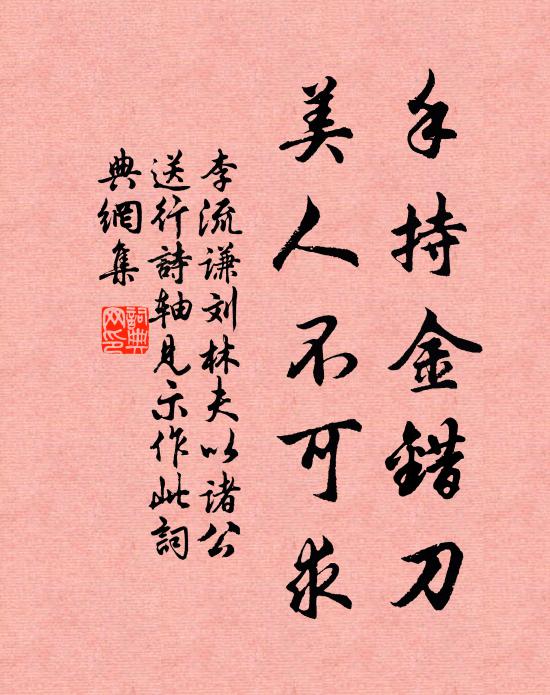 手持金錯刀
美人不可求
李流谦刘林夫以诸公
送行詩軸见示作此詞
典網集
詞典
网印